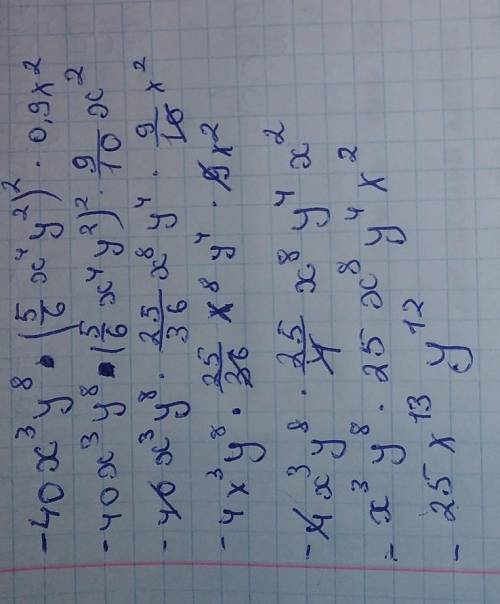 -40x³y⁸ · (5/6 x⁴y²)² · 0,9x²
-40x³y⁸ · (5/6 x⁴y²)² · 9/10 x²
-40x³y⁸ · 25/36 x⁸y⁴ · 9/10 x²
-4x³y⁸ · 25/36 x⁸y⁴ · 9x²
-4x³y⁸ · 25/4 x⁸y⁴x²
-x³y⁸ · 25x⁸y⁴x²
-25x¹³y¹²